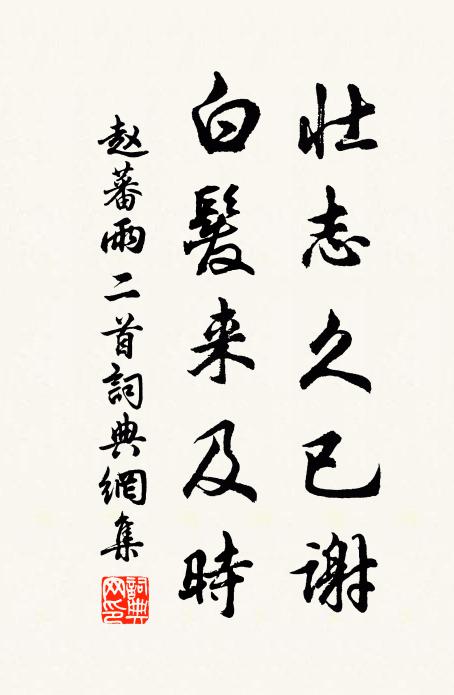 壮志久已謝
白髮来及時
赵蕃雨二首詞典網集
詞典網印